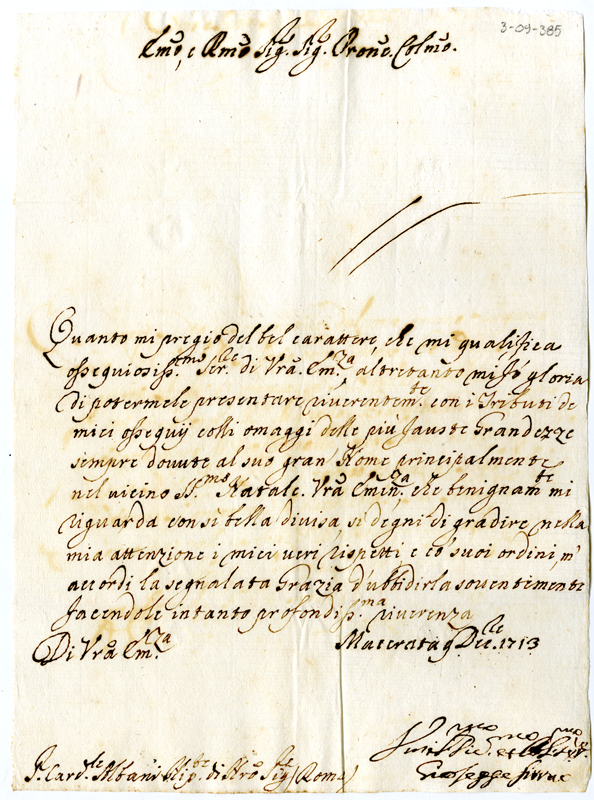 3-09-385
Emo, e Rmo Sig. Sig. Prone. Colmo.
Quanto mi pregio del bel carattere, che mi qualifica
ossequiosiss.mo Ser.re di Vra. Em.za altretanto mi fò gloria
di potermele presentare riverentem.te con i Tributi de
miei ossequij colli omaggi delle più fauste Grandezze
sempre dovute al suo gran Nome principalmente
nel vicino SS.mo Natale. Vra Emin.za che benignam.te mi
riguarda con si bella divisa, si degni di gradire nella
mia attenzione i miei veri rispetti e co' suoi ordini, m'
accordi la segnalata Grazia d'ubbidirla soventemente
facendole intanto profondiss.ma riverenza
Di Vra Em.za Macerata 9 Dec.re 1713
S. Card.le Albani di Nro Sig.re (Roma)
Giuseppe